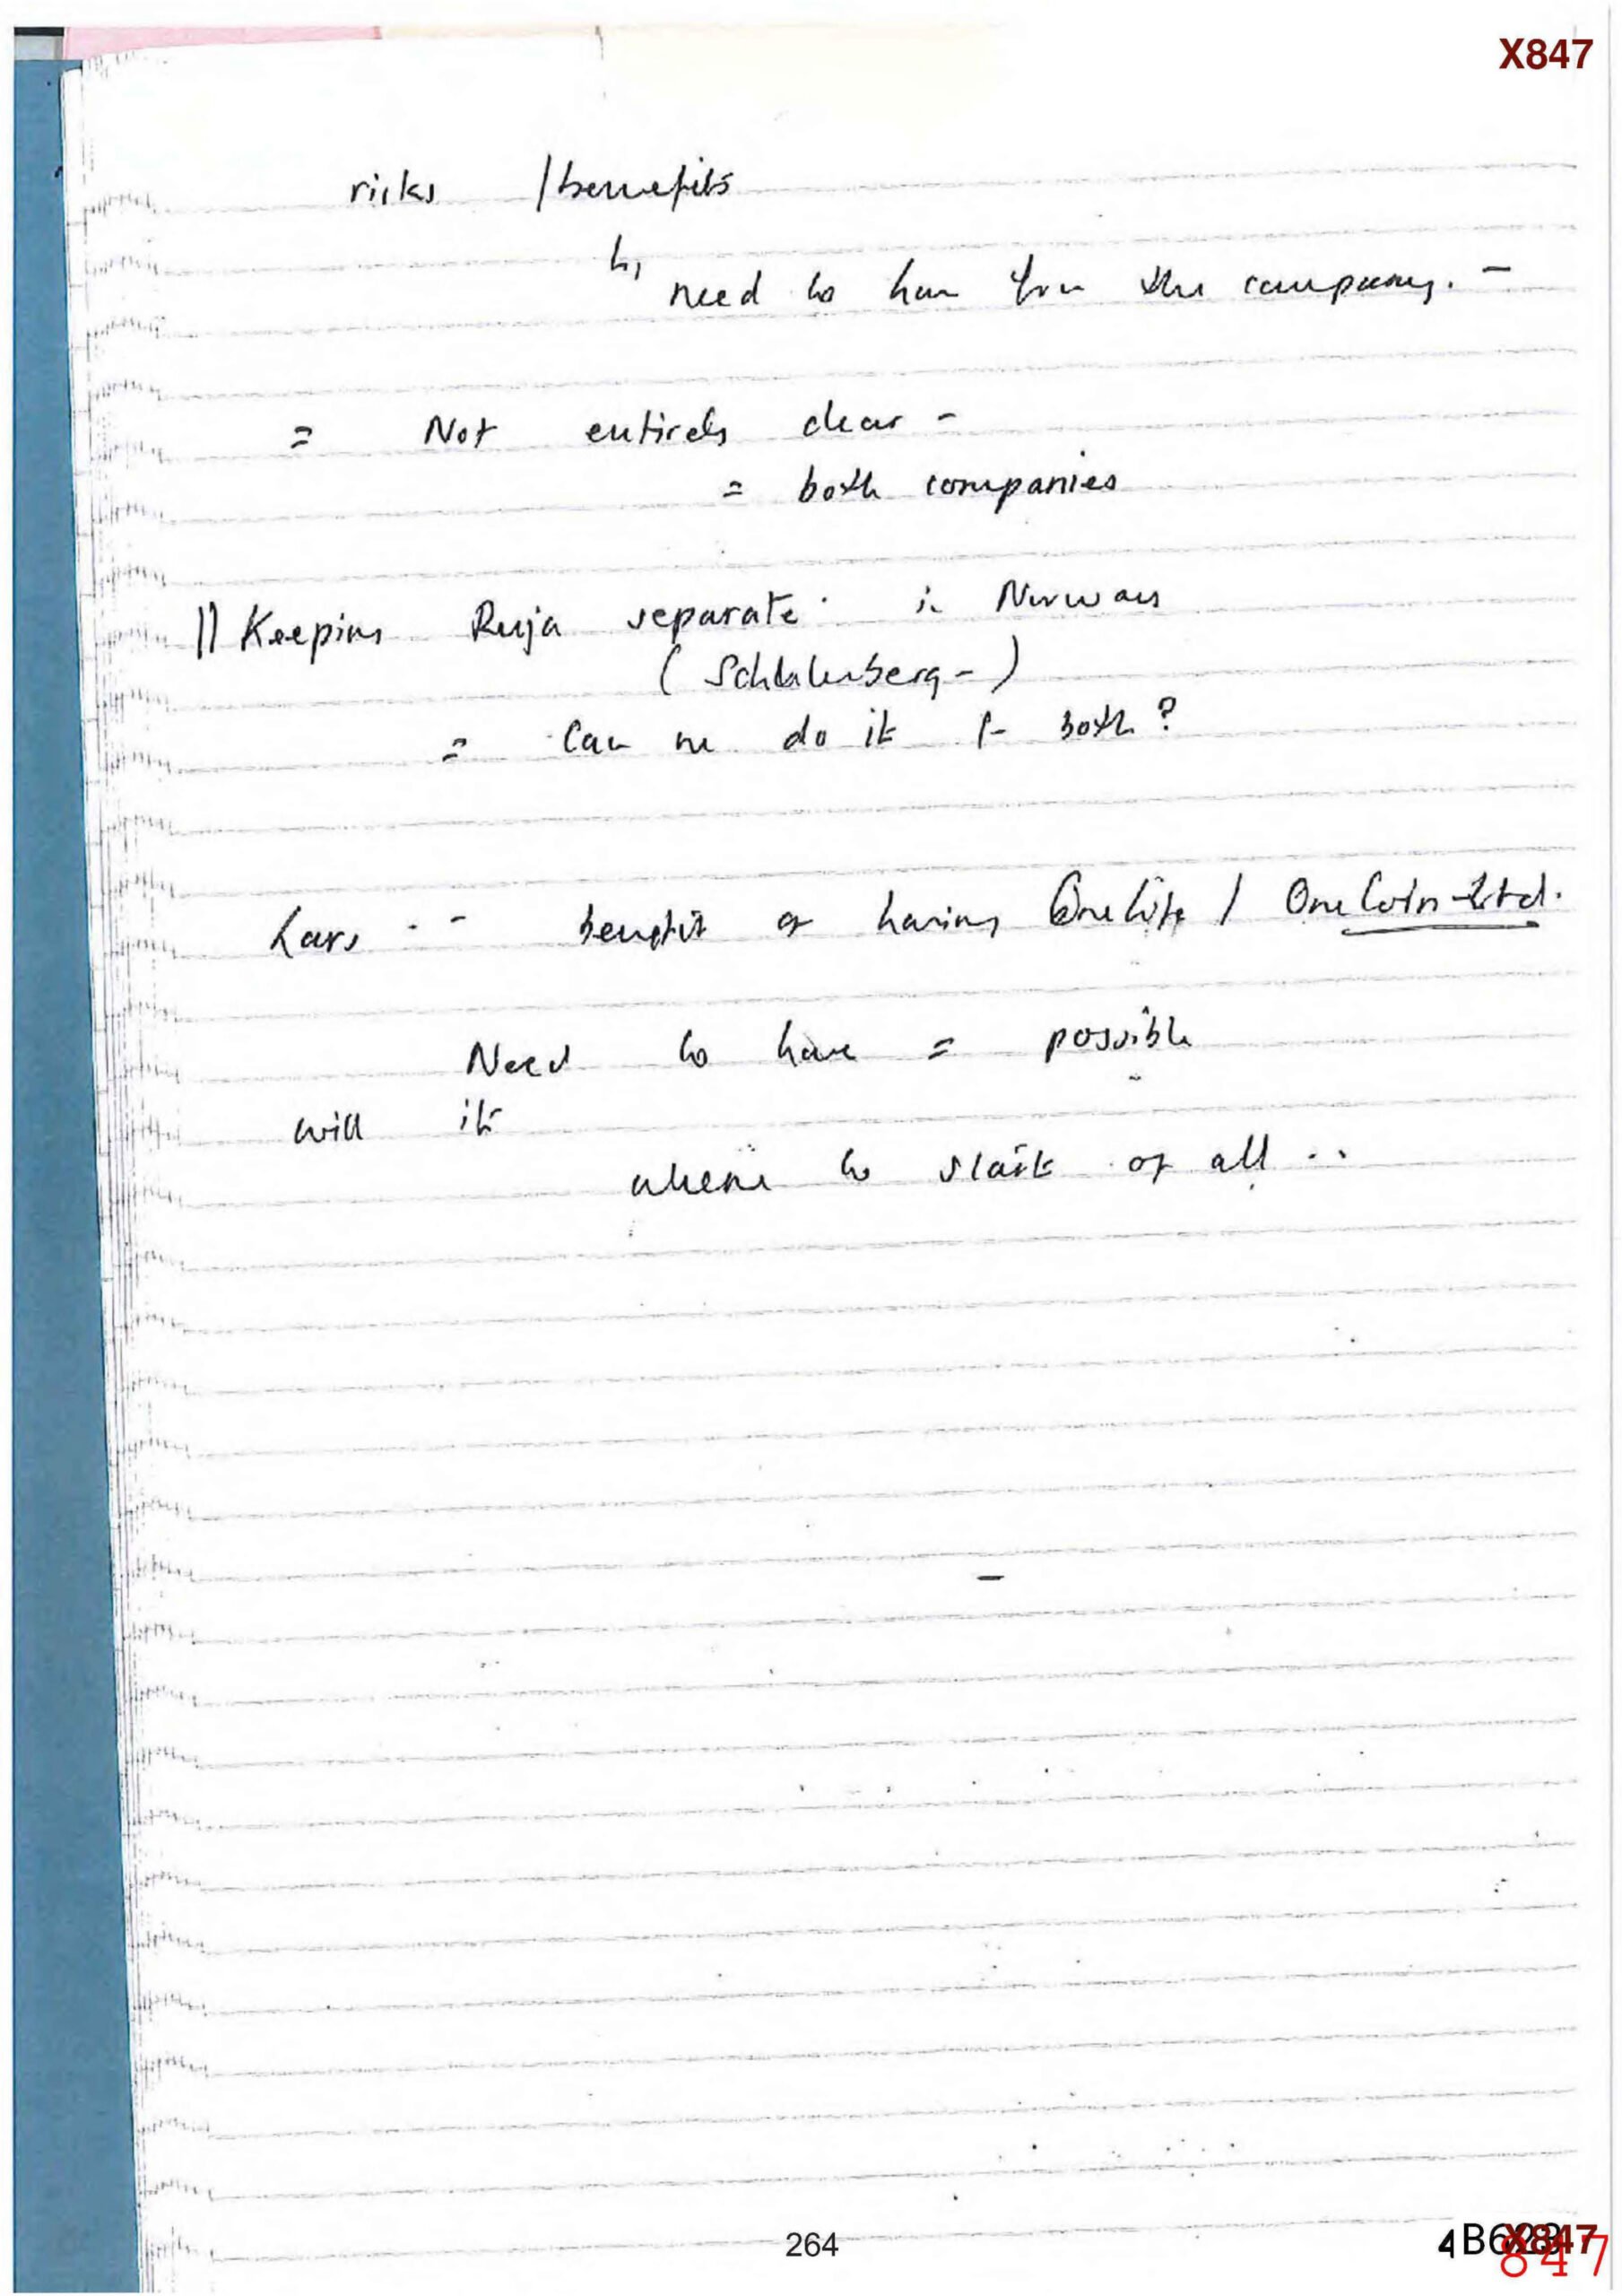 X847
risks / benefits
↳ need to hear from the company. -
= Not entirely clear -
= both companies
|| Keeping Ruja separate in Norway
(
= Can we do it for both?
Lars - benefit of having OneLife / OneCoin Ltd.
Need to have = possible
will it
where to start of all ..
264
X847
847